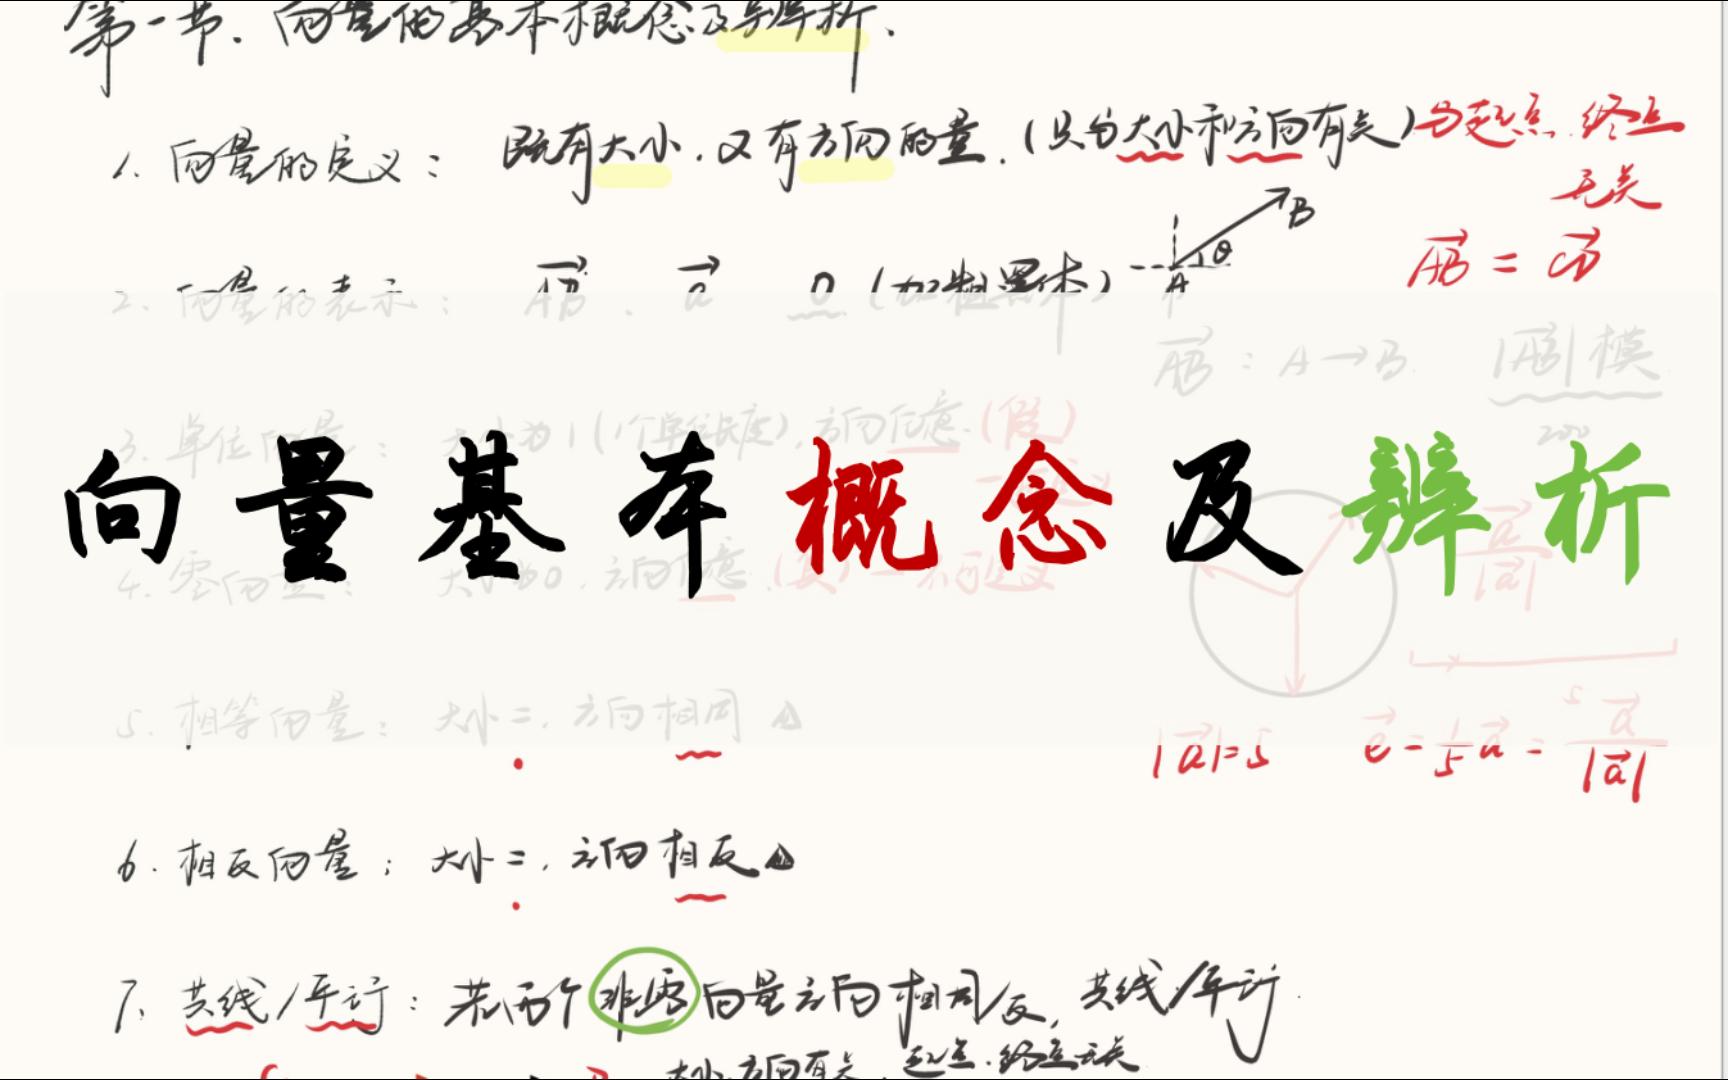 第一节. 向量的基本概念及辨析.
1. 向量的定义： 既有大小. 又有方向的量. (只与大小和方向有关) 与起点. 终点
无关
B
θ
A
AB = CD
2. 向量的表示： AB . a (加粗黑体)
AB : A → B. |AB| 模
3. 单位向量： 大小为1 (1个单位长度). 方向任意. (假)
向量基本概念及辨析
4. 零向量： 大小为0. 方向任意. (真)
a
|a|
5
5. 相等向量： 大小 =. 方向相同
|a|=5 e = 1/5 a = a/|a|
6. 相反向量： 大小 =. 方向相反
7. 共线/平行： 若两个非零向量方向相同/反, 共线/平行.
大小. 方向有关. 起点. 终点无关